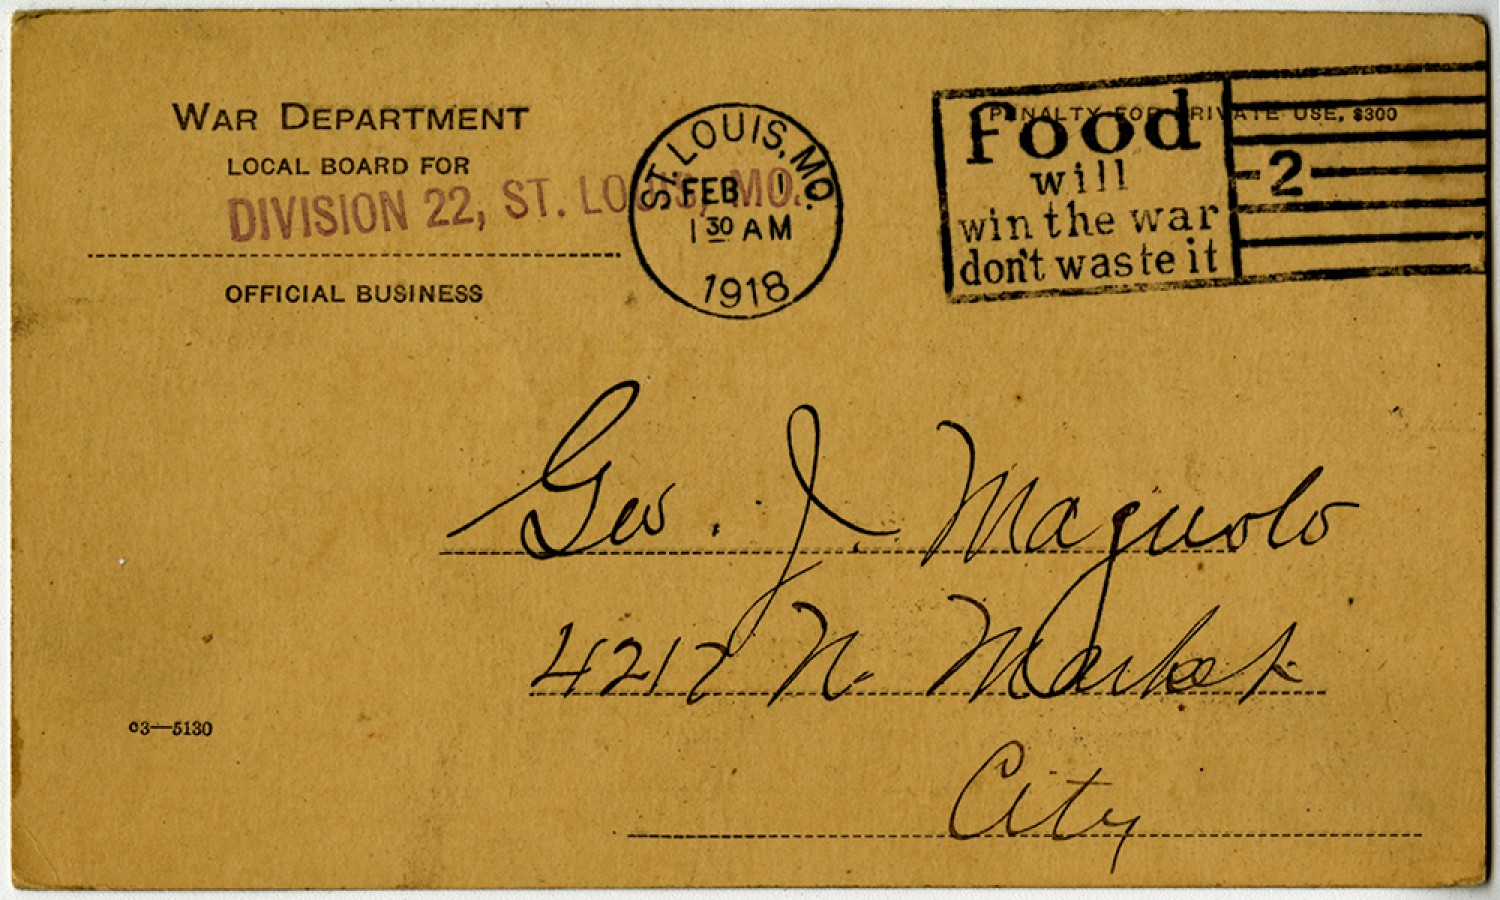 WAR DEPARTMENT
LOCAL BOARD FOR
DIVISION 22, ST. LOUIS, MO.
OFFICIAL BUSINESS
ST. LOUIS, MO.
FEB 1
1 30 AM
1918
PENALTY FOR PRIVATE USE, $300
Food
will
win the war
don't waste it
2
Geo. J. Magnolo
4217 N. Market
City
c3—5130